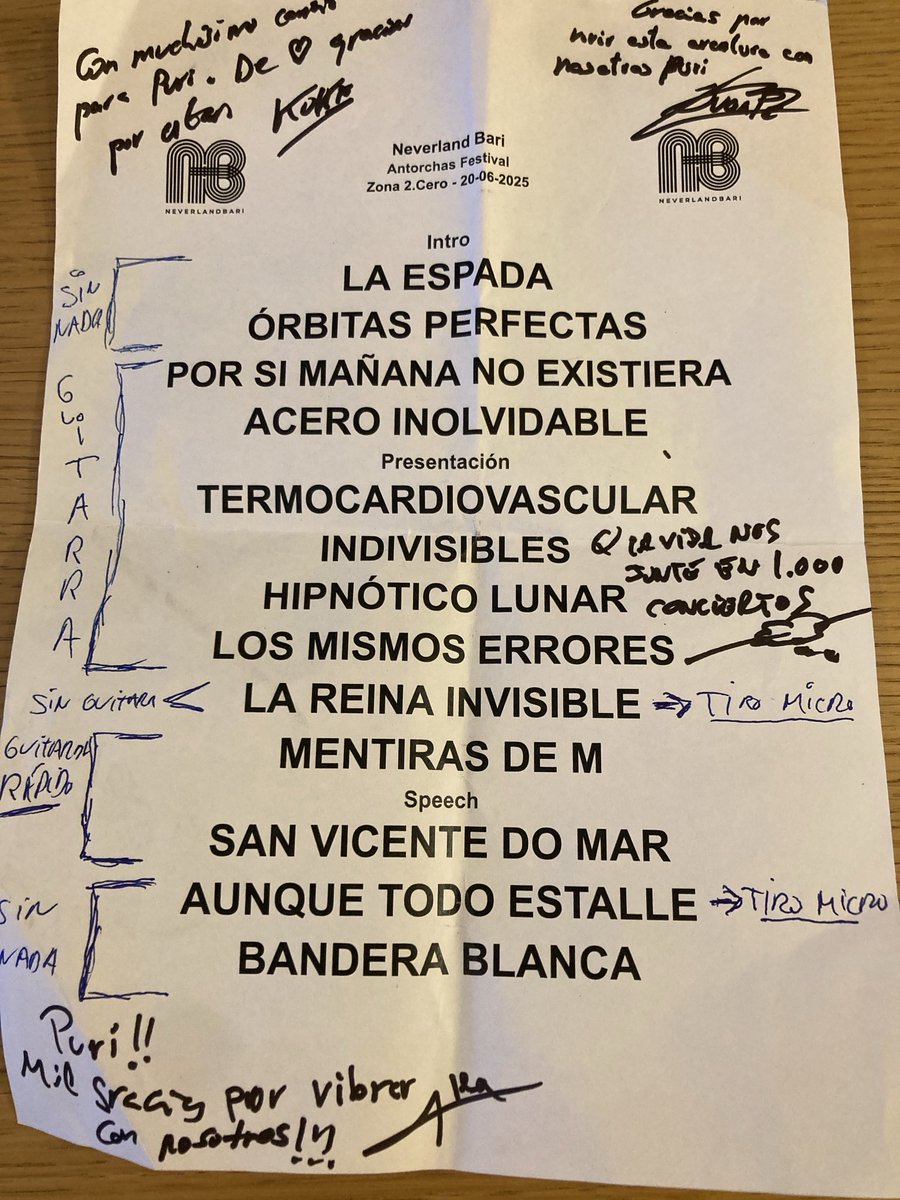 Con muchísimo cariño
para Puri. De ♡ gracias
por estar KOKE
Gracias por
vivir esta aventura con
nosotros Puri
NHB
NEVERLANDBARI
Neverland Bari
Antorchas Festival
Zona 2.Cero - 20-06-2025
NHB
NEVERLANDBARI
Intro
LA ESPADA
SIN
NADA
ÓRBITAS PERFECTAS
POR SI MAÑANA NO EXISTIERA
GUITARRA
ACERO INOLVIDABLE
Presentación
TERMOCARDIOVASCULAR
INDIVISIBLES
Q LA VIDA NOS
JUNTE EN 1.000
CONCIERTOS
HIPNÓTICO LUNAR
LOS MISMOS ERRORES
SIN GUITARRA < LA REINA INVISIBLE → TIRO MICRO
GUITARRA
RÁPIDO
MENTIRAS DE M
Speech
SAN VICENTE DO MAR
SIN
NADA
AUNQUE TODO ESTALLE → TIRO MICRO
BANDERA BLANCA
Puri!!
Mil gracias por vibrar
con nosotros!!!